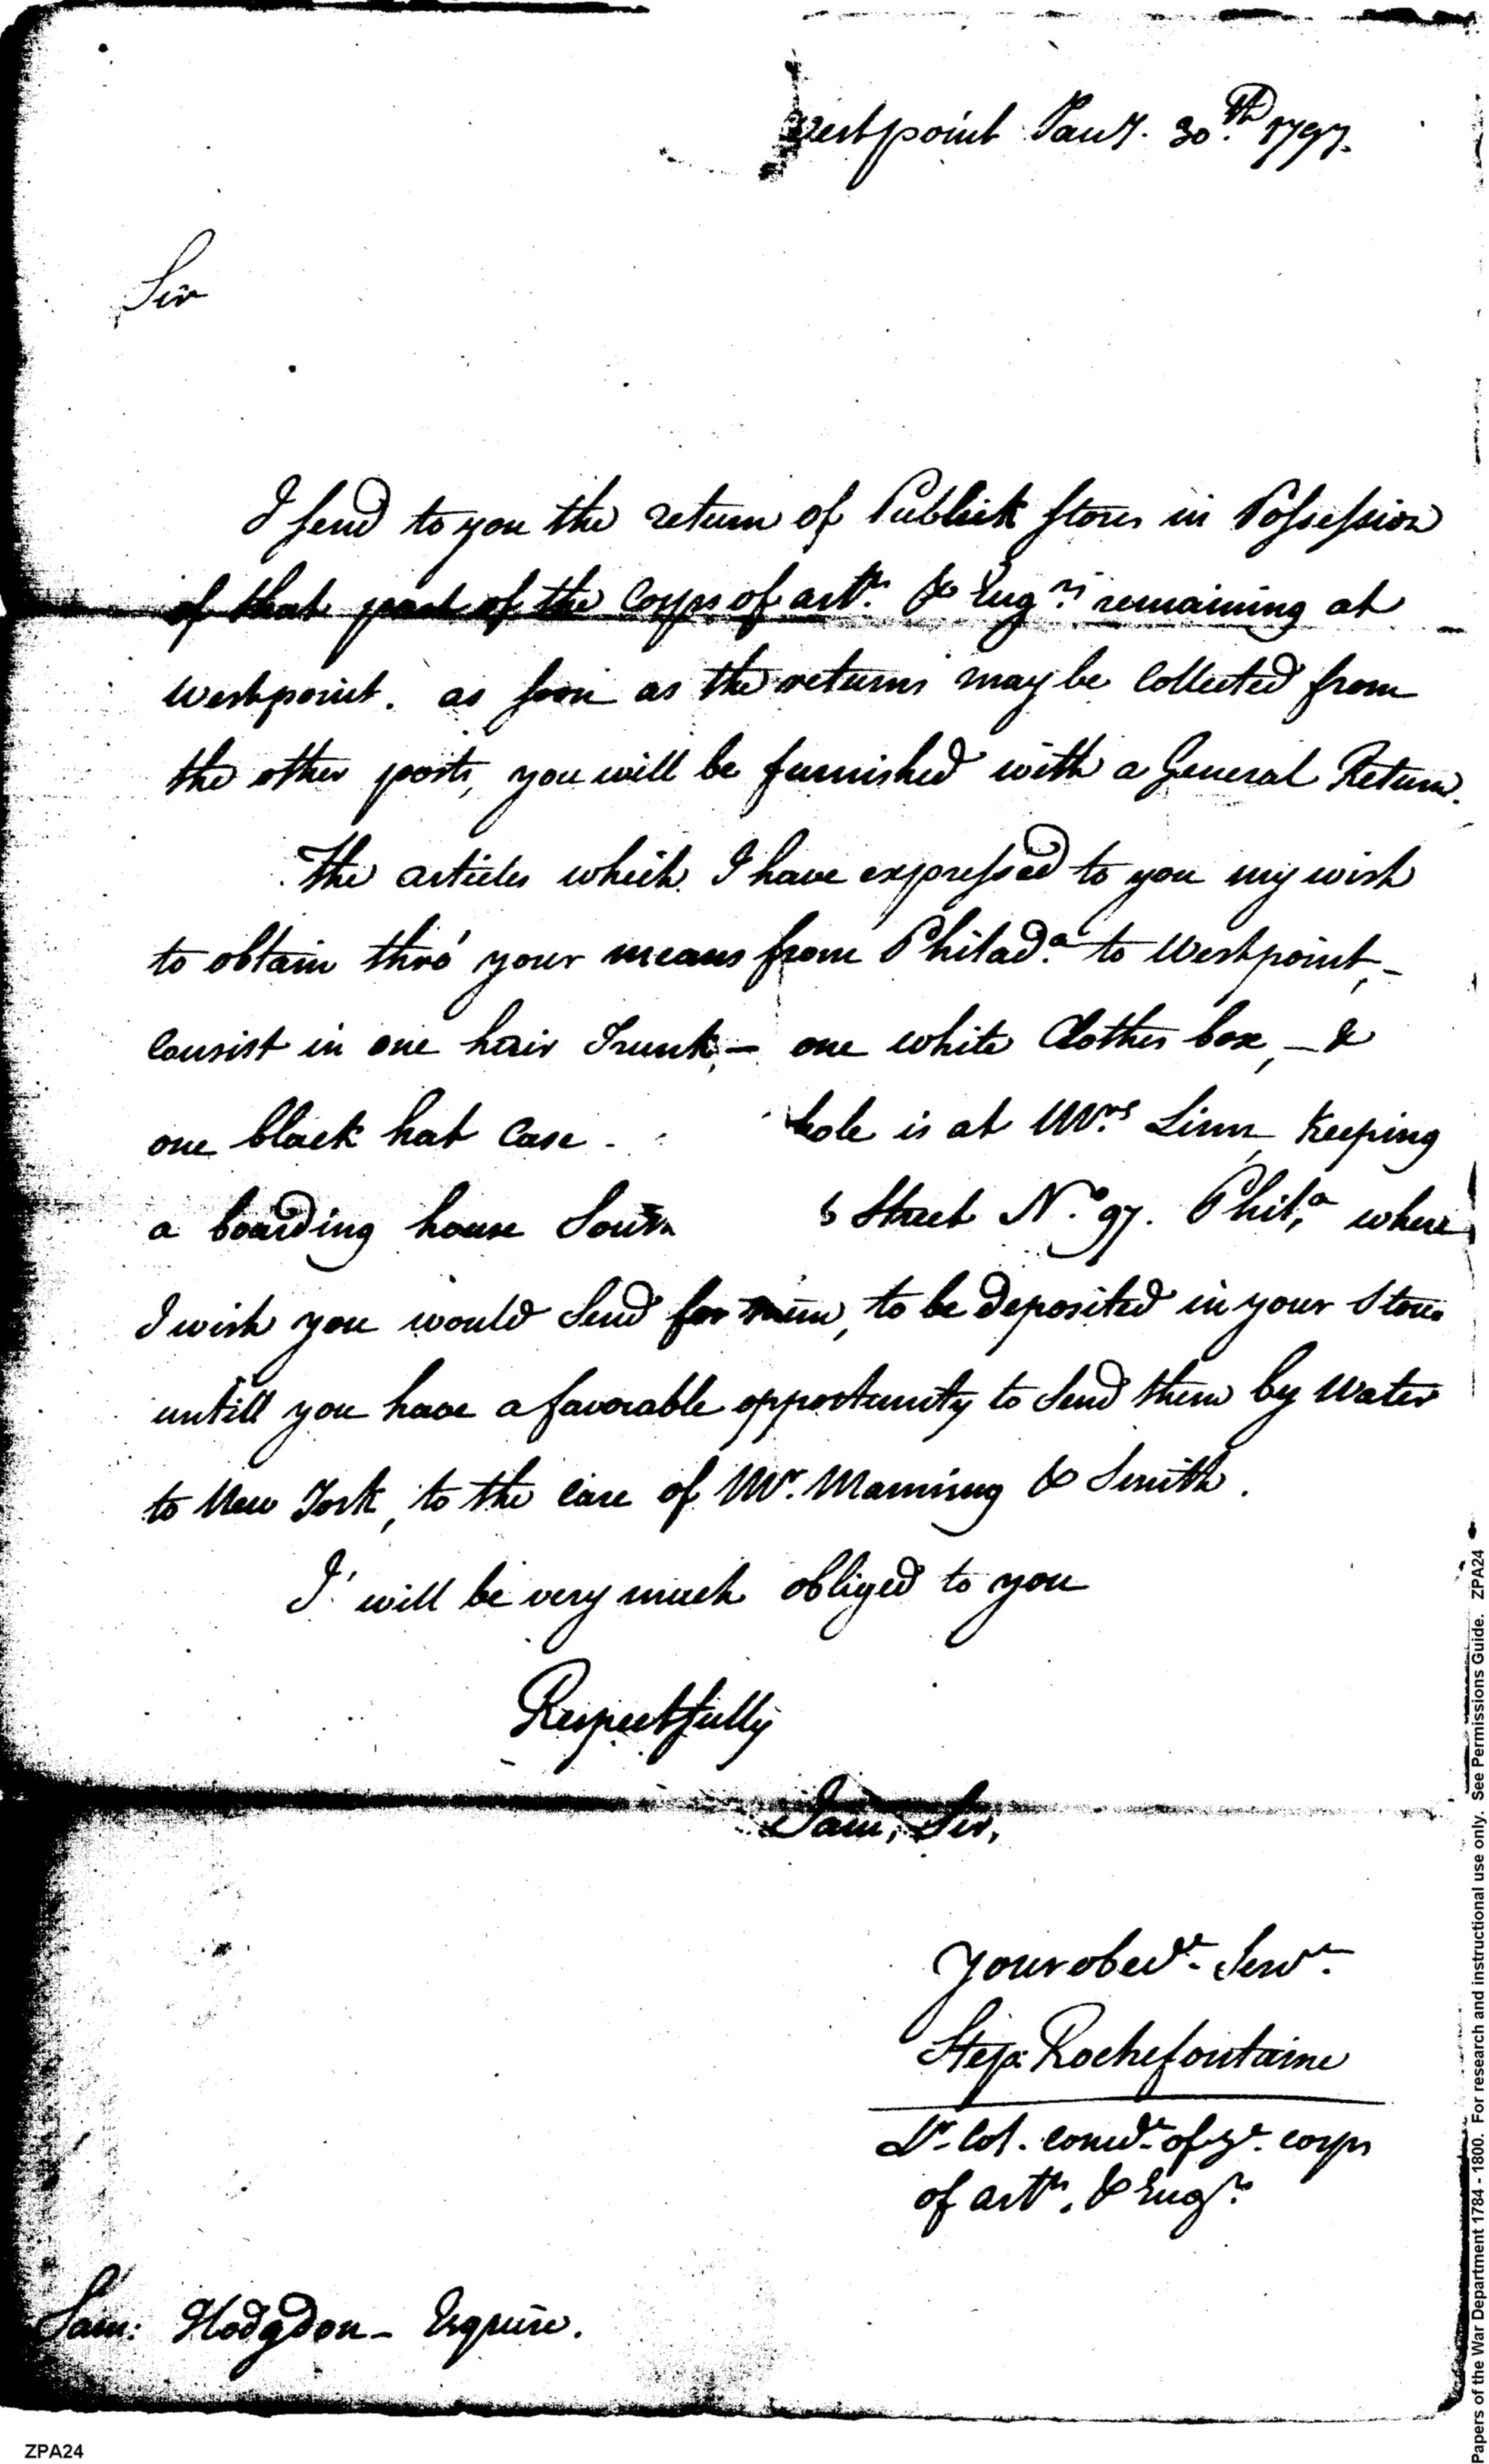 Westpoint Jany. 30.th 1797.
Sir
I send to you the return of Publick stores in Possession
of that part of the Corps of artrs. & Engrs. remaining at
westpoint. as soon as the returns may be Collected from
the other posts, you will be furnished with a General Return.
The articles which I have expressed to you my wish
to obtain thro' your means from Philada. to Westpoint,-
Consist in one hair Trunk,- one white Clothes box,- &
one black hat Case - hole is at Mrs. Linn Keeping
a boarding house South Street No. 97. Phila. where
I wish you would Send for them, to be Deposited in your Stores
untill you have a favorable opportunity to Send them by Water
to New York, to the Care of Mr. Manning & Smith.
I will be very much obliged to you
Respectfully
I am, Sir,
Your obedt. Servt.
Step: Rochefontaine
Lt. Col. comdt. of ye. corps
of artrs. & Engrs.
Sam: Hodgdon- Esquire.
Papers of the War Department 1784 - 1800. For research and instructional use only. See Permissions Guide. ZPA24
ZPA24